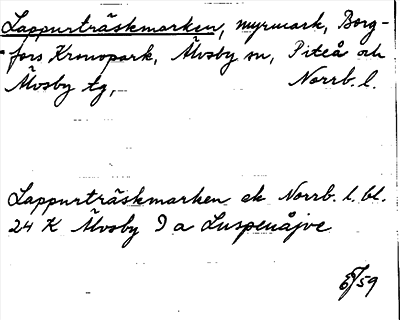 Lappurträskmarken, myrmark, Borg-
fors Kronopark, Älvsby sn, Piteå och
Älvsby tg, Norrb. l.
Lappurträskmarken ek Norrb. l. bl.
24 K Älvsby 9 a Luspenåjve
/59